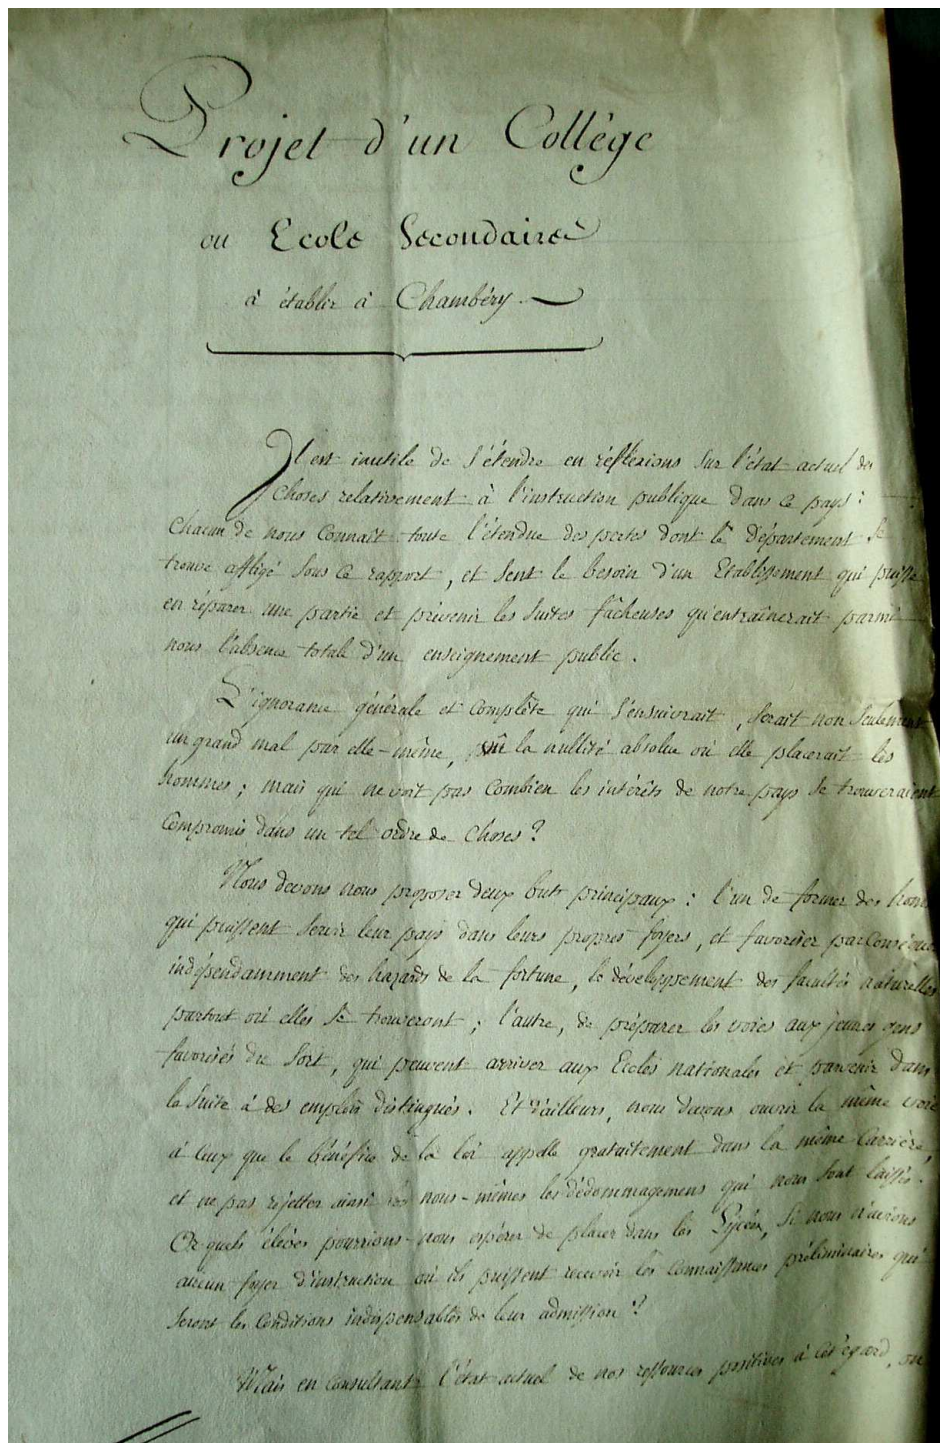 Projet d'un Collège
ou Ecole Secondaire
à établir à Chambéry.
Il est inutile de s'étendre en réflexions sur l'état actuel des
choses relativement à l'instruction publique dans ce pays :
chacun de nous connaît toute l'étendue des pertes dont le Département se
trouve affligé sous ce rapport, et sent le besoin d'un Etablissement qui puisse
en réparer une partie et prévenir les suites fâcheuses qu'entraînerait parmi
nous l'absence totale d'un enseignement public.
L'ignorance générale et complète qui s'ensuivrait, serait non seulement
un grand mal par elle-même, la nullité absolue où elle placerait les
hommes ; mais qui ne voit pas combien les intérêts de notre pays se trouveraient
compromis dans un tel ordre de choses ?
Nous devons nous proposer deux buts principaux : l'un de former des hom
qui puissent servir leur pays dans leurs propres foyers, et favoriser par conséque
indépendamment des hazards de la fortune, le développement des facultés naturelles
partout où elles se trouveront ; l'autre, de préparer les voies aux jeunes gens
favorisés du sort, qui peuvent arriver aux Ecoles nationales et parvenir dans
la suite à des emplois distingués. Et d'ailleurs, nous devons ouvrir la même voie
à ceux que le bénéfice de la loi appelle gratuitement dans la même carrière,
et ne pas rejetter ainsi nous-mêmes les dédommagemens qui nous sont laissés.
Or quels élèves pourrions-nous espérer de placer dans les Lycées, si nous n'avions
aucun foyer d'instruction où ils puissent recevoir les connaissances préliminaires qui
seront les conditions indispensables de leur admission ?
Mais en consultant l'état actuel de nos ressources positives à cet égard, on